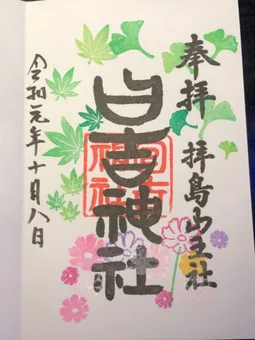 奉拝
拝島山王社
日吉神社
令和元年十月八日